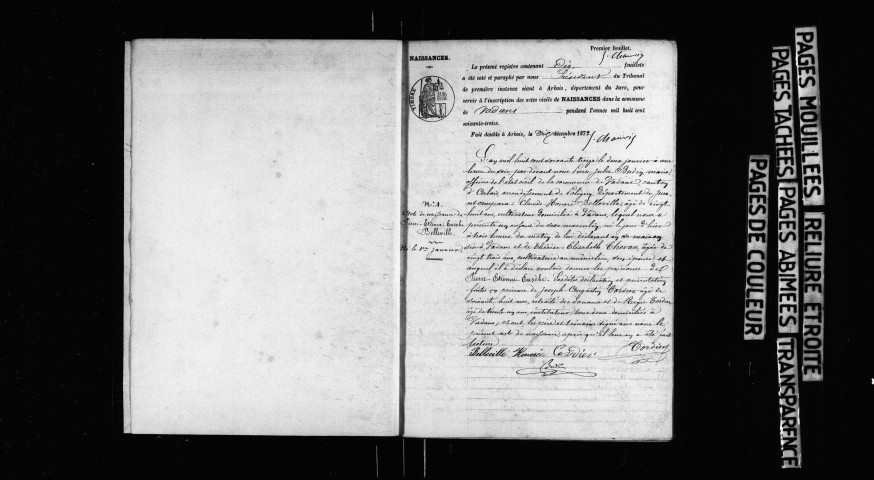 Premier feuillet.
NAISSANCES.
Le présent registre contenant Dix feuillets
a été coté et paraphé par nous Président du Tribunal
de première instance séant à Arbois, département du Jura, pour
servir à l'inscription des actes civils de NAISSANCES dans la commune
de Vadans pendant l'année mil huit cent
soixante-treize.
Fait double à Arbois, le Dix décembre 1872
TIMBRE
N° 1.
Acte de naissance de
Pierre-Etienne
Belleville.
Né le 1er janvier
L'an mil huit cent soixante treize le deux janvier à une
heure du soir par devant nous maire
officier de l'état civil de la commune de Vadans, canton
d'Arbois arrondissement de Poligny, département du Jura
est comparu Claude Henri Belleville, âgé de vingt
huit ans, cultivateur domicilié à Vadans, lequel nous a
présenté un enfant du sexe masculin, né le jour d'hier
à trois heures du matin de lui déclarant en sa maison
sise à Vadans et de Thérèse Elisabeth âgée de
vingt trois ans, cultivatrice au même lieu, son épouse et
auquel il a déclaré vouloir donner les prénoms de
Pierre Etienne Les dites déclaration et présentation
faites en présence de Joseph Augustin Cordier âgé de
soixante huit ans, retraité des douanes et de Cordier
âgé de trente un ans, instituteur, tous deux domiciliés à
Vadans, et ont les père et témoins signé avec nous le
présent acte de naissance après qu'il leur en a été fait
lecture
Belleville Henri Cordier Cordier
PAGES MOUILLEES RELIURE ETROITE
PAGES TACHEES PAGES ABIMEES TRANSPARENCE
PAGES DE COULEUR